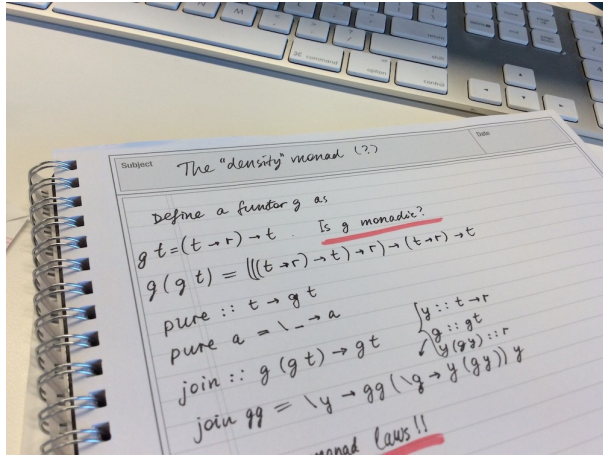 command
option
control
Subject
The "density" monad (?)
Date
Define a functor g as
g t = (t → r) → t. Is g monadic?
g (g t) = (((t → r) → t) → r) → (t → r) → t
pure :: t → g t
pure a = \_ → a
join :: g (g t) → g t
y :: t → r
g :: g t
y (g y) :: r
join gg = \y → gg (\g → y (g y)) y
monad laws!!